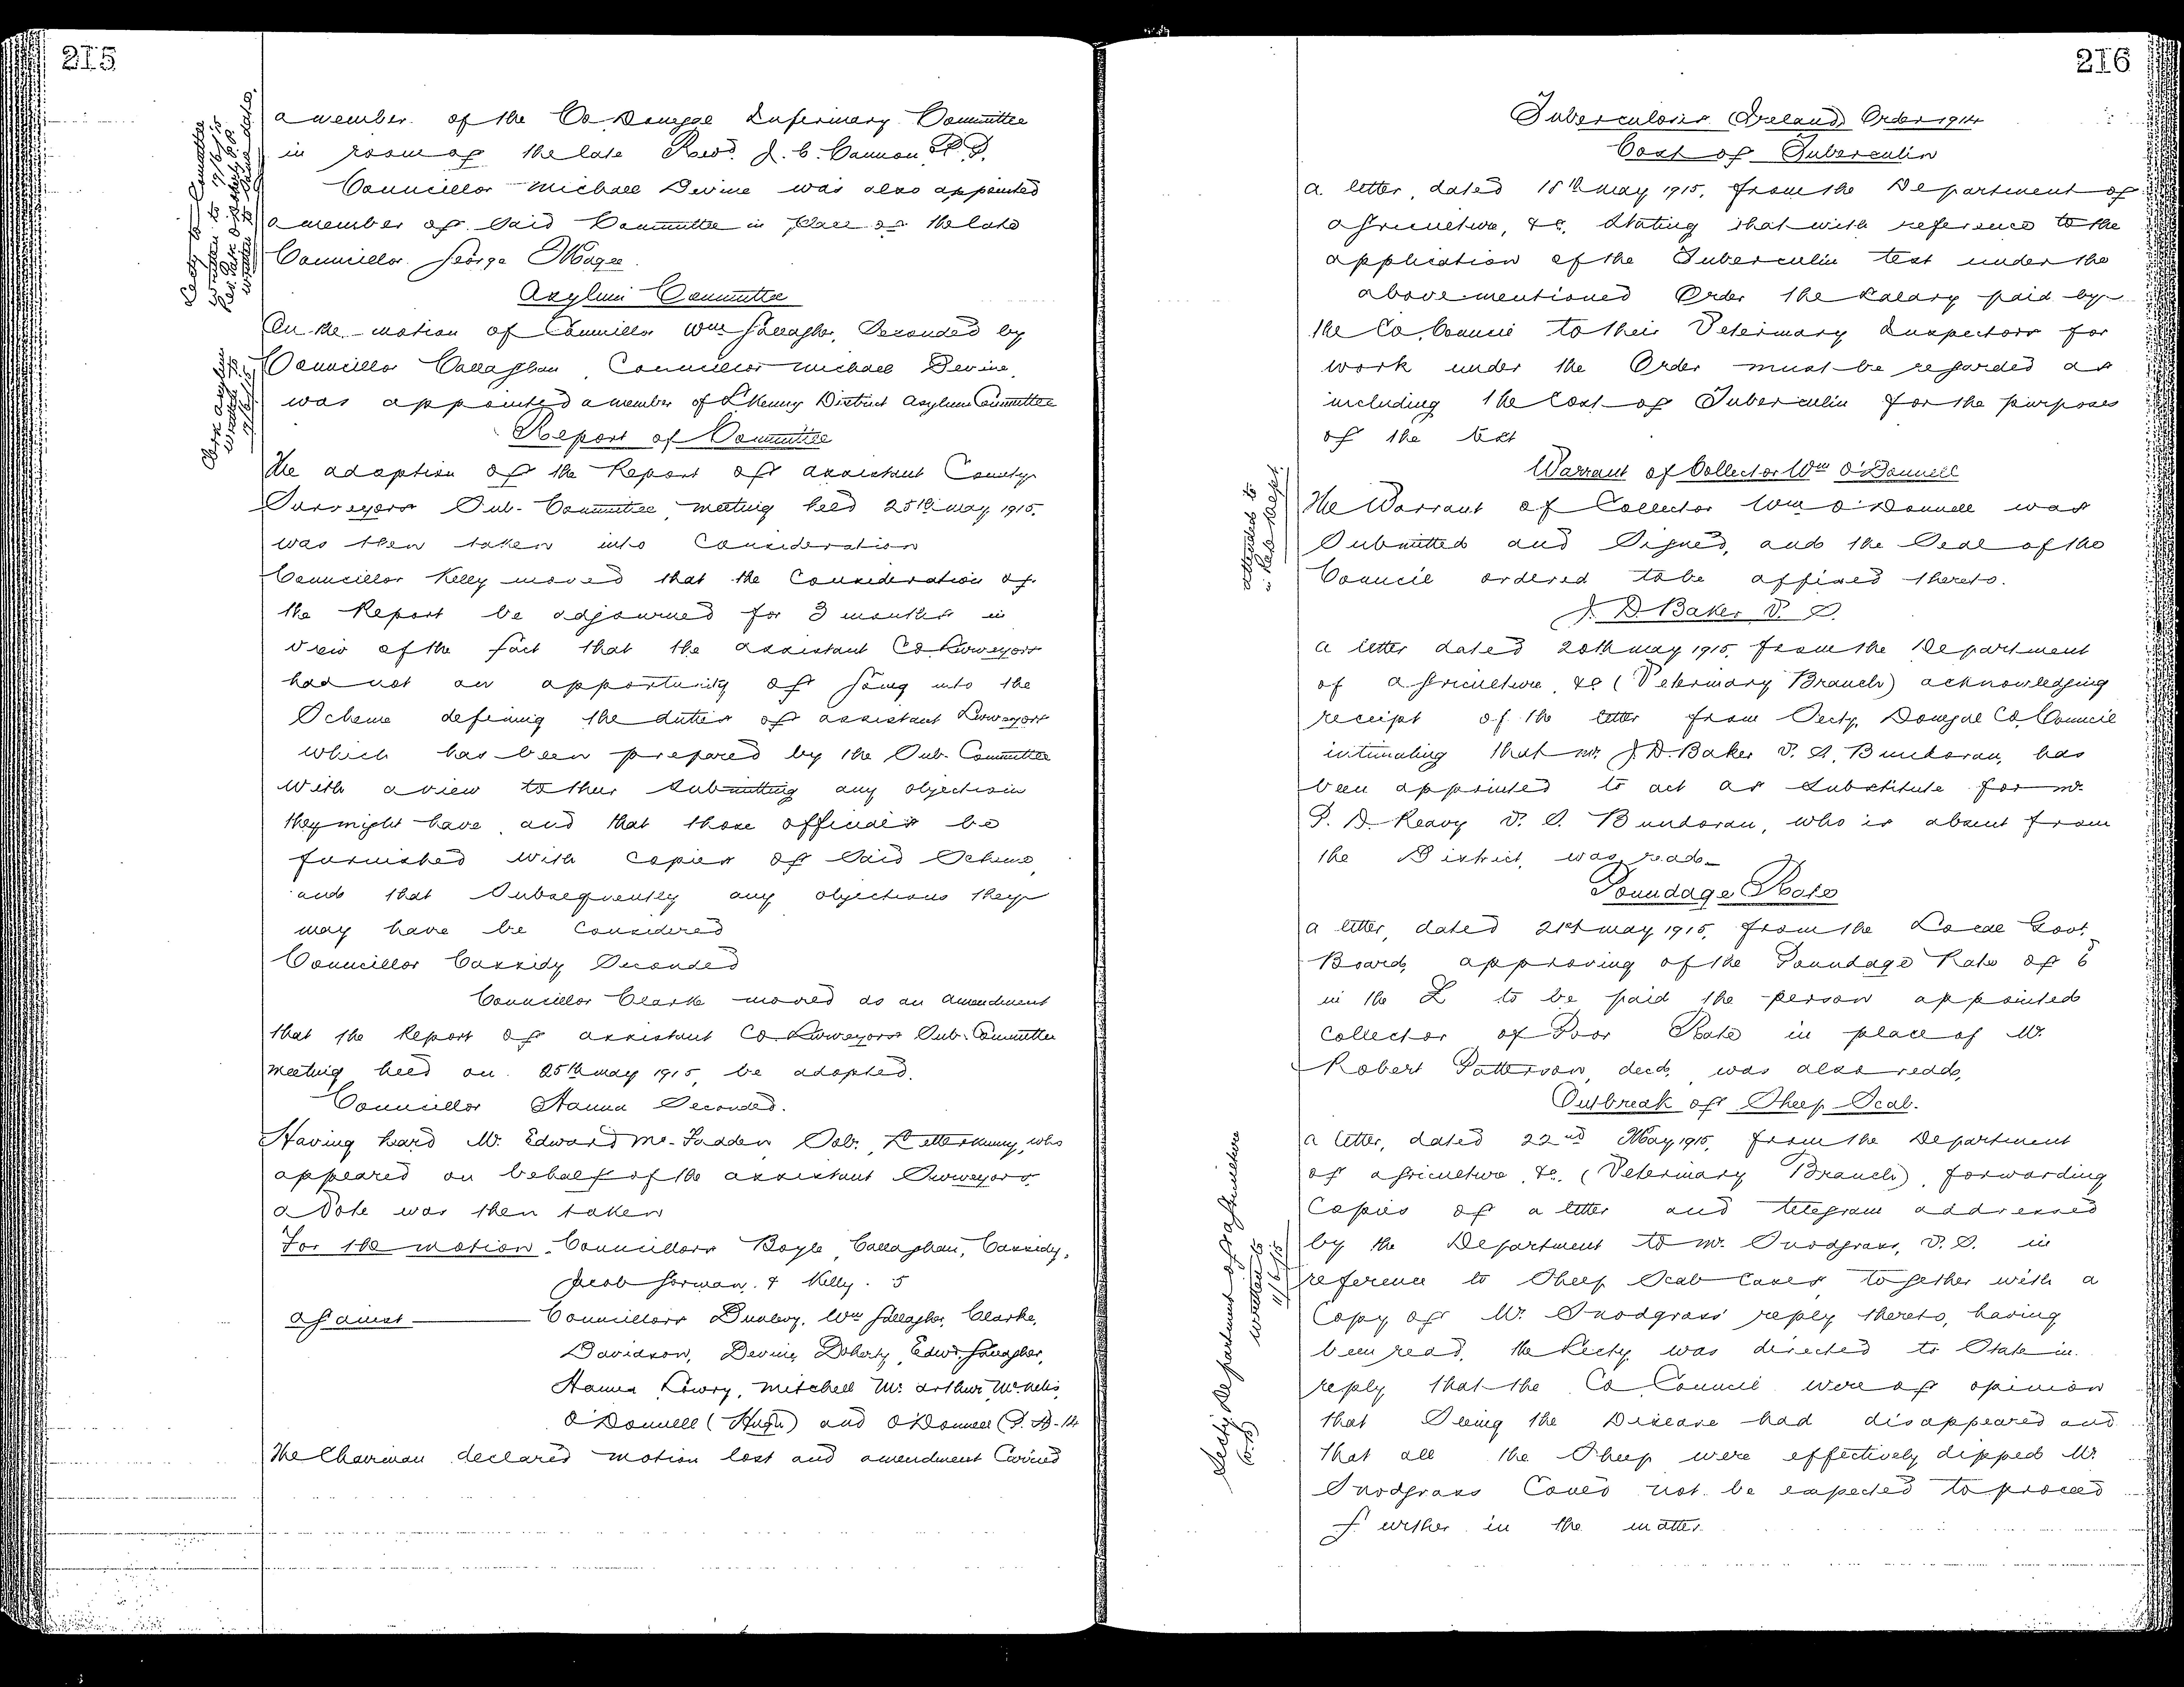 215
a member of the Co Donegal Infirmary Committee
in room of the late Revd. J. C. Cannon P. P.
Councillor Michael Devine was also appointed
a member of Said Committee in place of the late
Councillor George Magee.
Secty to Committee
written to 17/6/15
written to same date
Asylum Committee
On the motion of Councillor Wm Gallagher, Seconded by
Councillor Callaghan, Councillor Michael Devine,
was appointed a member of L'Kenny District Asylum Committee
Clerk asylum
written to
17/6/15
Report of Committee
The adoption of the Report of Assistant County
Surveyors Sub-Committee, meeting held 25th May 1915,
was then taken into Consideration
Councillor Kelly moved that the Consideration of
the Report be adjourned for 3 months in
view of the fact that the assistant Co Surveyors
had not an opportunity of going into the
Scheme defining the duties of assistant Surveyors
which has been prepared by the Sub-Committee
with a view to their submitting any objection
they might have, and that those officials be
furnished with copies of Said Scheme,
and that Subsequently any objections they
may have be Considered
Councillor Cassidy Seconded
Councillor Clarke moved as an amendment
that the Report of assistant Co Surveyors Sub-Committee
meeting held on 25th May 1915, be adopted.
Councillor Hanna Seconded.
Having heard Mr. Edward McFadden Solr. Letterkenny, who
appeared on behalf of the assistant Surveyors,
a Vote was then taken
For the motion - Councillors Boyle, Callaghan, Cassidy,
Jacob Gorman & Kelly. 5
against Councillors Dunlevy, Wm Gallagher, Clarke,
Davidson, Devine, Doherty, Edwd. Gallagher,
Hanna, Lowry, Mitchell, McArthur, McNelis,
O'Donnell (Hugh) and O'Donnell (P. A) - 14
The Chairman declared motion lost and amendment Carried
216
Tuberculosis (Ireland) Order 1914
Cost of Tuberculin
a letter, dated 18th May 1915, from the Department of
agriculture, &c, stating that with reference to the
application of the Tuberculin test under the
above-mentioned Order the salary paid by
the Co. Council to their Veterinary Inspectors for
work under the Order must be regarded as
including the Cost of Tuberculin for the purposes
of the test
Warrant of Collector Wm O'Donnell
The Warrant of Collector Wm O'Donnell was
Submitted and Signed, and the Seal of the
Council ordered to be affixed thereto.
attended to
J. D. Baker V. S.
a letter dated 20th May 1915, from the Department
of agriculture, &c (Veterinary Branch) acknowledging
receipt of the letter from Secty, Donegal Co. Council
intimating that Mr. J. D. Baker V. S, Bundoran, has
been appointed to act as Substitute for Mr.
P. D. Reavy V. S. Bundoran, who is absent from
the District, was read
Poundage Rate
a letter, dated 21st May 1915, from the Local Govt.
Board, approving of the Poundage Rate of 6
in the £ to be paid the person appointed
Collector of Poor Rate in place of Mr.
Robert Patterson, decd, was also read,
Outbreak of Sheep Scab.
a letter, dated 22nd May 1915, from the Department
of agriculture, &c. (Veterinary Branch), forwarding
Copies of a letter and telegram addressed
by the Department to Mr. Snodgrass, V. S. in
reference to Sheep Scab Cases, together with a
Copy of Mr. Snodgrass' reply thereto, having
been read, the Secty. was directed to State in
reply that the Co Council were of opinion
that Seeing the Disease had disappeared and
that all the Sheep were effectively dipped Mr.
Snodgrass Could not be expected to proceed
further in the matter.
Secty Department of Agriculture
written to
11/6/15